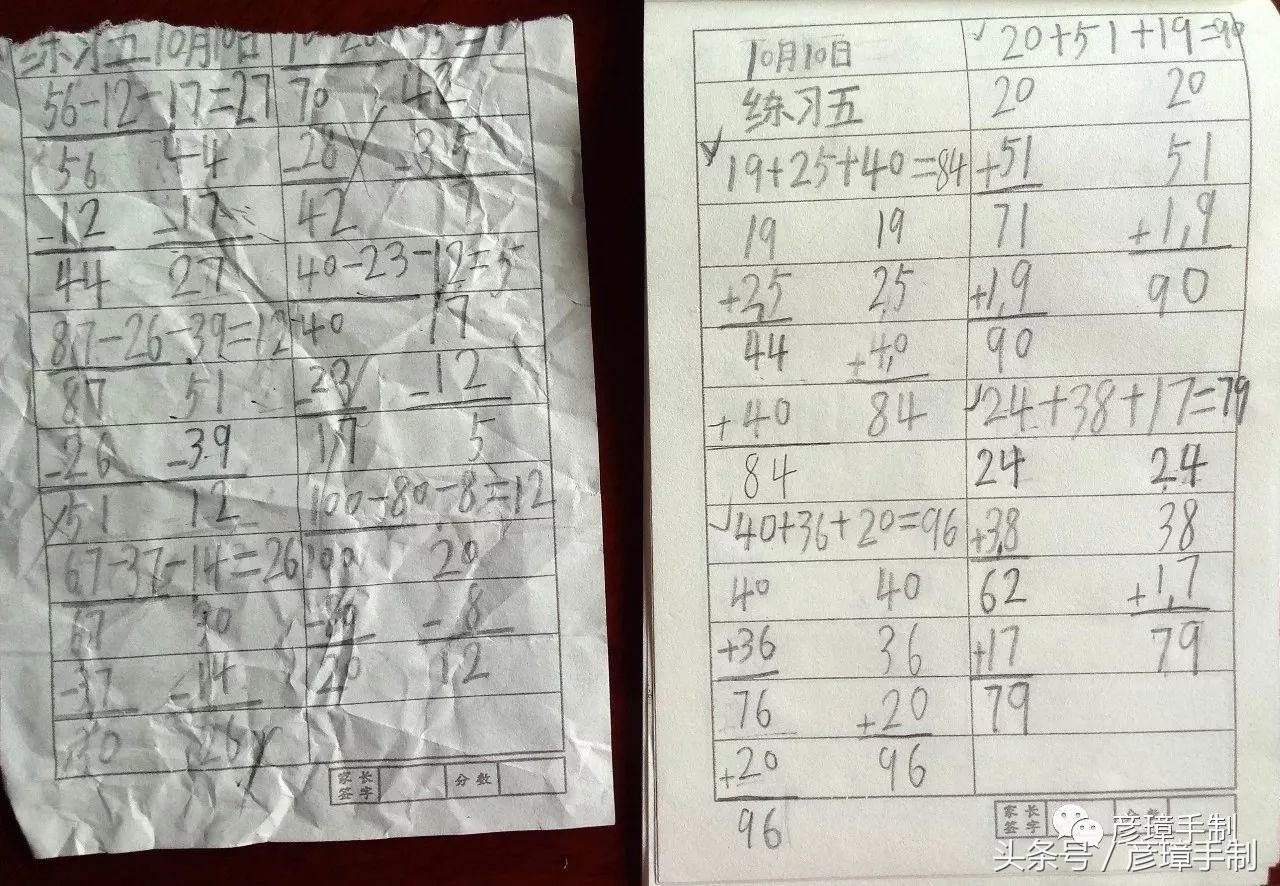 练习五 10月10日
56-12-17=27
56 44
-12 -17
44 27
87-26-39=12
87 51
-26 -39
51 12
67-37-14=26
67 30
-37 -14
30 26
70 42
-28 -35
42 7
40-23-12=5
40 17
-23 -12
17 5
100-80-8=12
100 20
-80 -8
20 12
家长签字 分数
10月10日
练习五
✓ 19+25+40=84
19 19
+25 25
44 +40
+40 84
84
✓ 40+36+20=96
40 40
+36 36
76 +20
+20 96
96
✓ 20+51+19=90
20 20
+51 51
71 +19
+19 90
90
✓ 24+38+17=79
24 24
+38 38
62 +17
+17 79
79
家长签字 分数
彦璋手制
头条号/彦璋手制